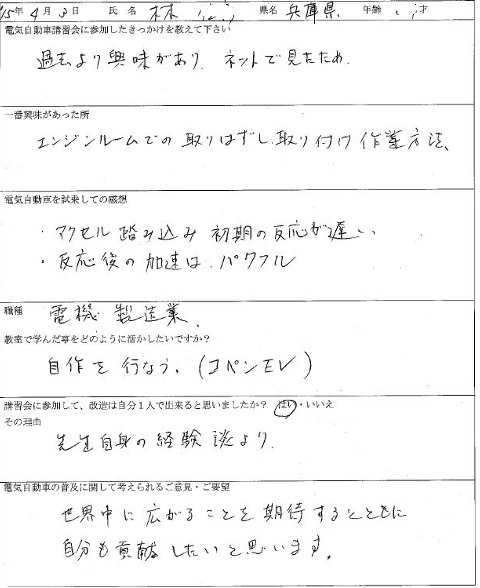 15年4月3日 氏名 林 県名 兵庫県 年齢 才
電気自動車講習会に参加したきっかけを教えて下さい
過去より興味があり、ネットで見たため
一番興味があった所
エンジンルームでの取りはずし、取り付け作業方法、
電気自動車を試乗しての感想
・アクセル踏み込み初期の反応が遅い
・反応後の加速は、パワフル
職種 電機製造業、
教室で学んだ事をどのように活かしたいですか?
自作を行なう。(コペンEV)
講習会に参加して、改造は自分1人で出来ると思いましたか? はい・いいえ
その理由
先生自身の経験談より、
電気自動車の普及に関して考えられるご意見・ご要望
世界中に広がることを期待するとともに
自分も貢献したいと思います。